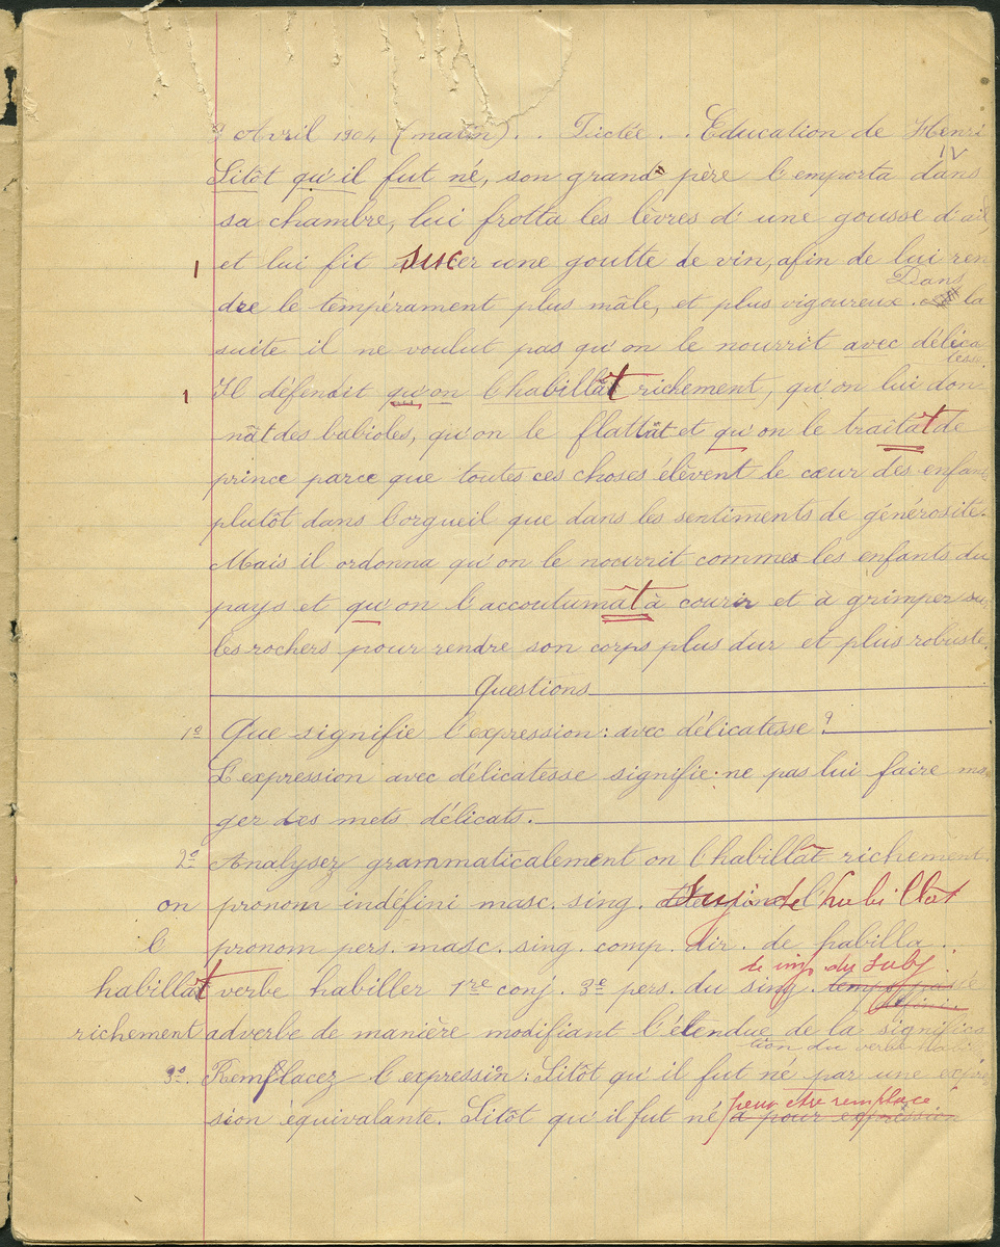 Avril 1904 (matin). . Dictée . . Education de Henri IV
Sitôt qu'il fut né, son grand père l'emporta dans
sa chambre, lui frotta les lèvres d'une gousse d'ail,
1 et lui fit sucer une goutte de vin, afin de lui ren
dre le tempérament plus mâle, et plus vigoureux. Dans la
suite il ne voulut pas qu'on le nourrit avec délica
tesse.
1 Il défendit qu'on l'habillât richement, qu'on lui don
nât des babioles, qu'on le flattât et qu'on le traitât de
prince parce que toutes ces choses élèvent le cœur des enfants
plutôt dans l'orgueil que dans les sentiments de générosité.
Mais il ordonna qu'on le nourrit comme les enfants du
pays et qu'on l'accoutumât à courir et à grimper sur
les rochers pour rendre son corps plus dur et plus robuste.
Questions
1º Que signifie l'expression : avec délicatesse ?
L'expression avec délicatesse signifie : ne pas lui faire man
ger des mets délicats.
2º Analysez grammaticalement on l'habillât richement.
on pronom indéfini masc. sing. Sujet de habillât
l' pronom pers. masc. sing. comp. dir. de habilla .
de imp. du subj
habillât verbe habiller 1re conj. 3e pers. du sing. temps passé
défini.
richement adverbe de manière modifiant l'étendue de la significa
tion du verbe
3º. Remplacez l'expressin : Sitôt qu'il fut né par une expres
peut etre remplacé
sion équivalante. Sitôt qu'il fut né a pour expression